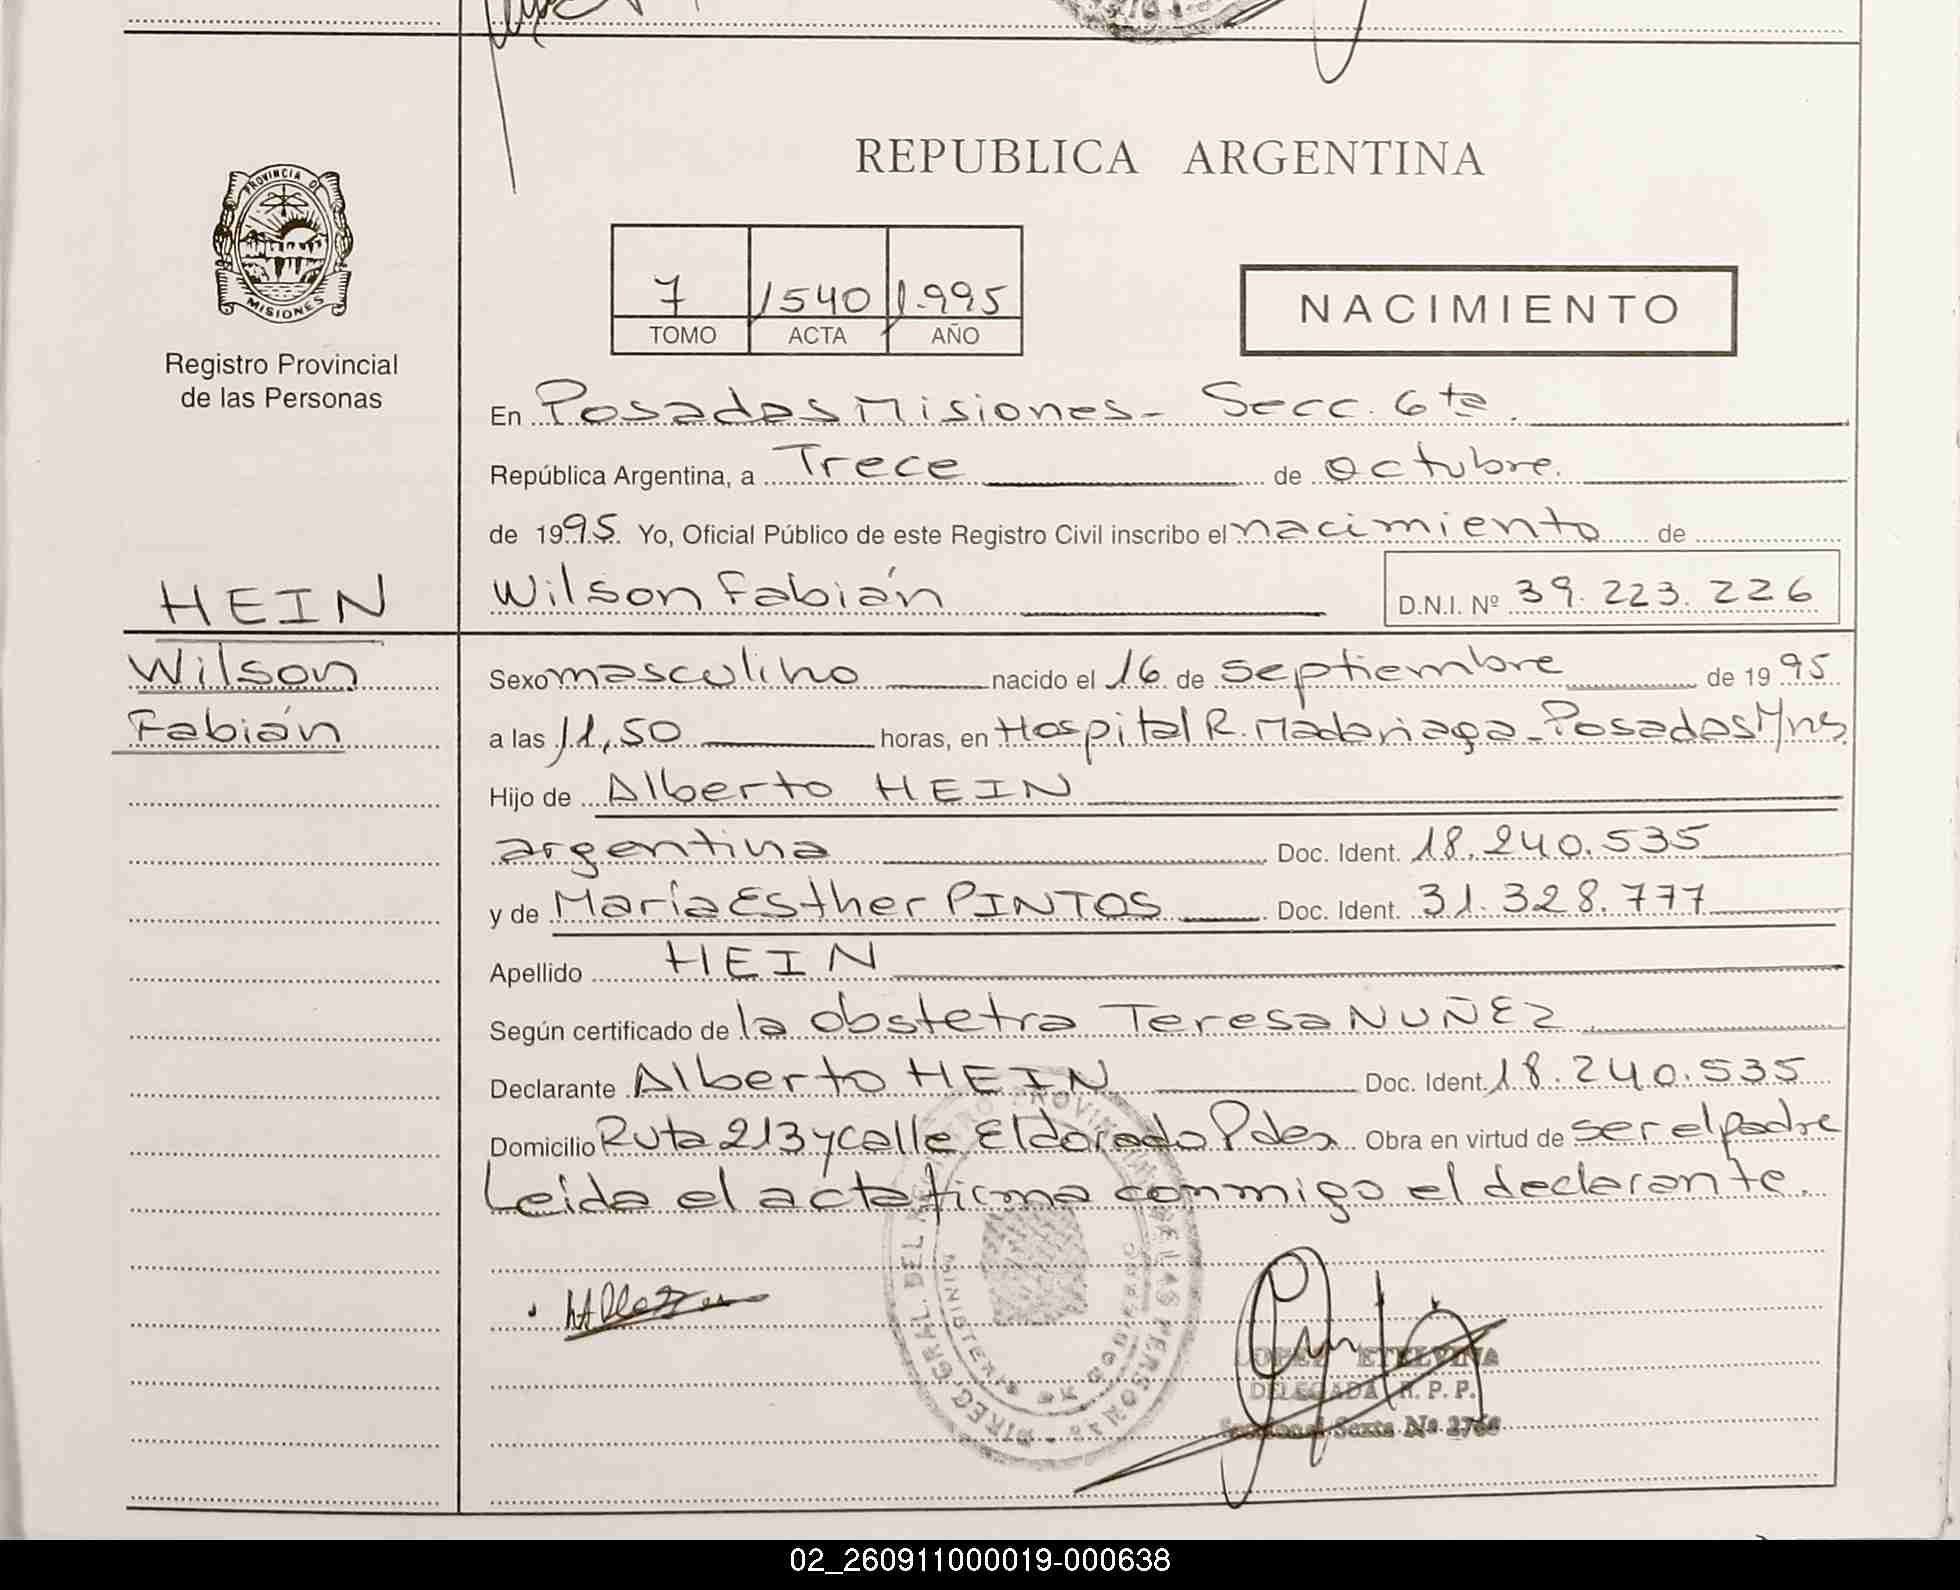 PROVINCIA DE
MISIONES
Registro Provincial
de las Personas
REPUBLICA ARGENTINA
7 1540 1.995
TOMO ACTA AÑO
NACIMIENTO
En Posadas Misiones - Secc. 6ta.
República Argentina, a Trece de Octubre.
de 1995. Yo, Oficial Público de este Registro Civil inscribo el nacimiento de
HEIN
Wilson Fabián D.N.I. Nº 39.223.226
Wilson
Sexo masculino nacido el 16 de Septiembre de 1995
Fabián
a las 11,50 horas, en Hospital R. Madariaga - Posadas Mns
Hijo de Alberto HEIN
argentina Doc. Ident. 18.240.535
y de María Esther PINTOS Doc. Ident. 31.328.777
Apellido HEIN
Según certificado de la obstetra Teresa NUÑEZ
Declarante Alberto HEIN Doc. Ident. 18.240.535
Domicilio Ruta 213 y calle Eldorado Pdas Obra en virtud de ser el padre
Leida el acta firma conmigo el declarante.
DIREC. GRAL. DEL REGISTRO PROVINCIAL DE LAS PERSONAS
MINISTERIO DE GOBIERNO
LOPEZ ETELVINA
DELEGADA R. P. P.
Seccional Sexta Nº 2768
02_260911000019-000638